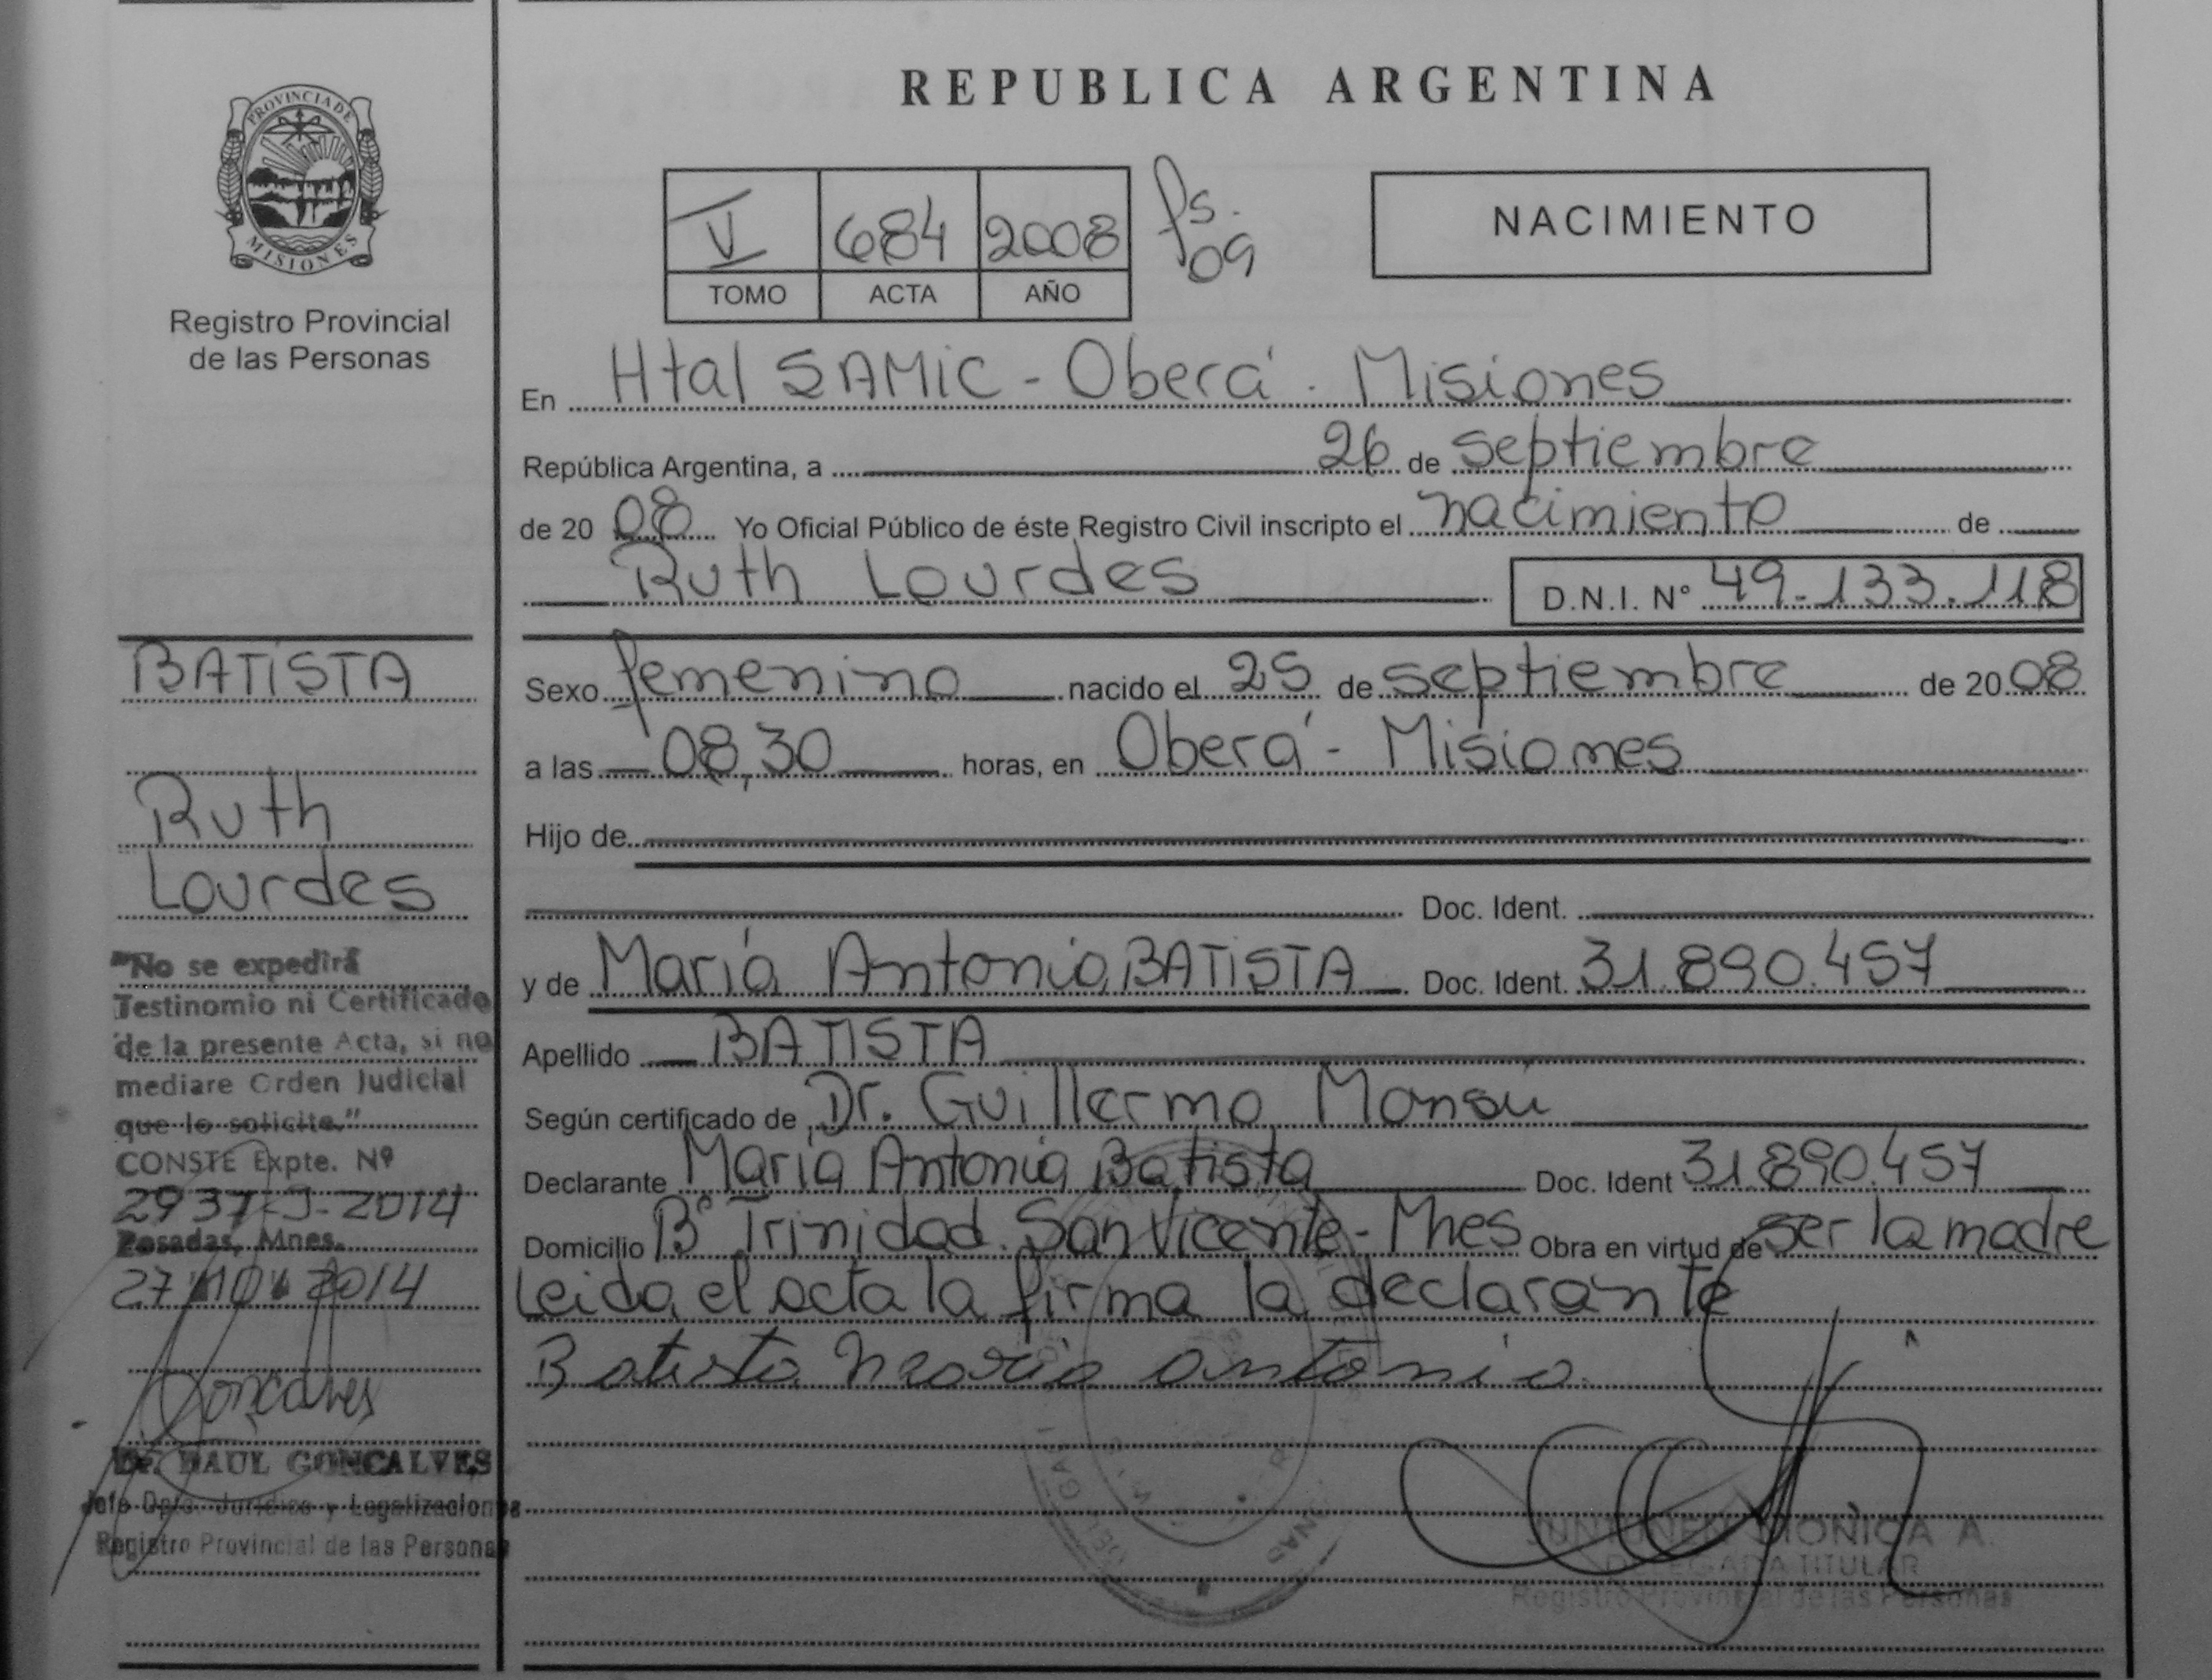 REPUBLICA ARGENTINA
PROVINCIA DE
MISIONES
Registro Provincial
de las Personas
V 684 2008 fs. 09
TOMO ACTA AÑO
NACIMIENTO
En Htal SAMIC - Oberá - Misiones
República Argentina, a 26 de septiembre
de 20 08 Yo Oficial Público de éste Registro Civil inscripto el nacimiento de
Ruth Lourdes D.N.I. N° 49.133.118
Sexo femenino nacido el 25 de septiembre de 20 08
a las 08,30 horas, en Oberá - Misiones
Hijo de
Doc. Ident.
y de María Antonia BATISTA Doc. Ident. 31.890.457
Apellido BATISTA
Según certificado de Dr. Guillermo
Declarante María Antonia Batista Doc. Ident 31.890.457
Domicilio B° Trinidad San Vicente - Mnes Obra en virtud de ser la madre
Leida el acta la firma la declarante
Batista Maria Antonia
MONICA A.
DELEGADA TITULAR
Registro Provincial de las Personas
BATISTA
Ruth
Lourdes
"No se expedirá
Testinomio ni Certificado
de la presente Acta, si no
mediare Orden Judicial
que lo solicite."
CONSTE Expte. Nº
2937-J-2014
Posadas, Mnes.
27 2014
Goncalves
Dr. RAUL GONCALVES
Jefe Dpto. Jurídico y Legalizaciones
Registro Provincial de las Personas